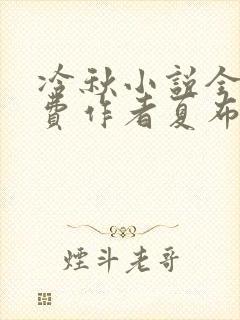 冷秋小说全
费作者夏布
煙斗老哥